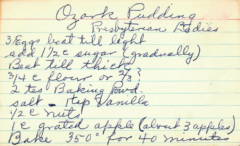 Ozark Pudding
Presbyterian Ladies
3 Eggs beat till light
add 1 1/2 c sugar (gradually)
Beat till thick
3/4 c flour or 2/3?
2 tes Baking Powd.
salt - tsp Vanilla
1/2 c nuts
1 c grated apple (about 3 apples)
Bake 350° for 40 minutes